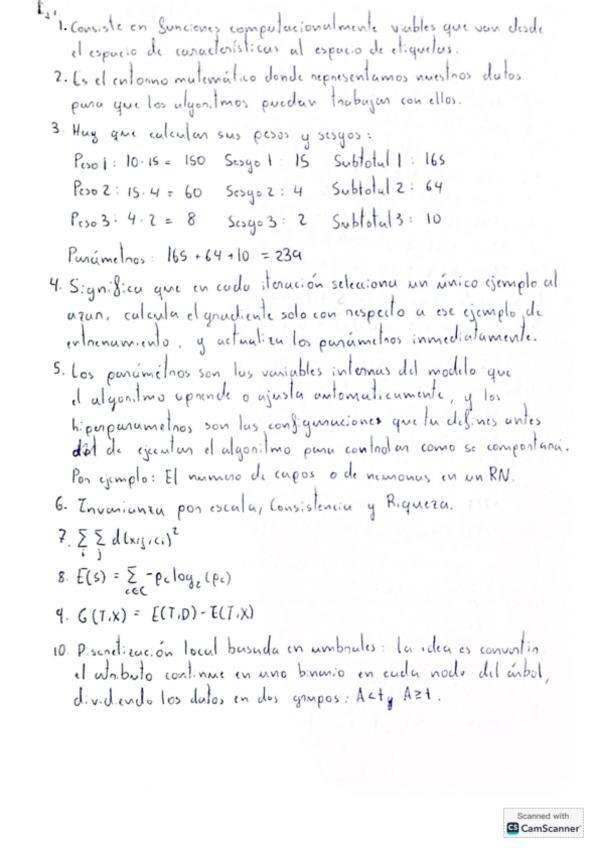 E1:
1. Consiste en funciones computacionalmente viables que van desde
el espacio de características al espacio de etiquetas.
2. Es el entorno matemático donde representamos nuestros datos
para que los algoritmos puedan trabajar con ellos.
3. Hay que calcular sus pesos y sesgos:
Peso 1: 10·15 = 150 Sesgo 1: 15 Subtotal 1: 165
Peso 2: 15·4 = 60 Sesgo 2: 4 Subtotal 2: 64
Peso 3: 4·2 = 8 Sesgo 3: 2 Subtotal 3: 10
Parámetros: 165 + 64 + 10 = 239
4. Significa que en cada iteración selecciona un único ejemplo al
azar, calcula el gradiente solo con respecto a ese ejemplo de
entrenamiento, y actualiza los parámetros inmediatamente.
5. Los parámetros son las variables internas del modelo que
el algoritmo aprende o ajusta automaticamente, y los
hiperparametros son las configuraciones que tu defines antes
de ejecutar el algoritmo para controlar como se comportará.
Por ejemplo: El numero de capas o de neuronas en un RN.
6. Invarianza por escala, Consistencia y Riqueza.
7. Σi Σj d(xij, ci)²
8. E(S) = Σc∈C -pc log2(pc)
9. G(T,X) = E(T,D) - E(T,X)
10. Discretización local basada en umbrales: la idea es convertir
el atributo continuo en uno binario en cada nodo del árbol,
dividiendo los datos en dos grupos: A<t y A≥t.
Scanned with
CS CamScanner